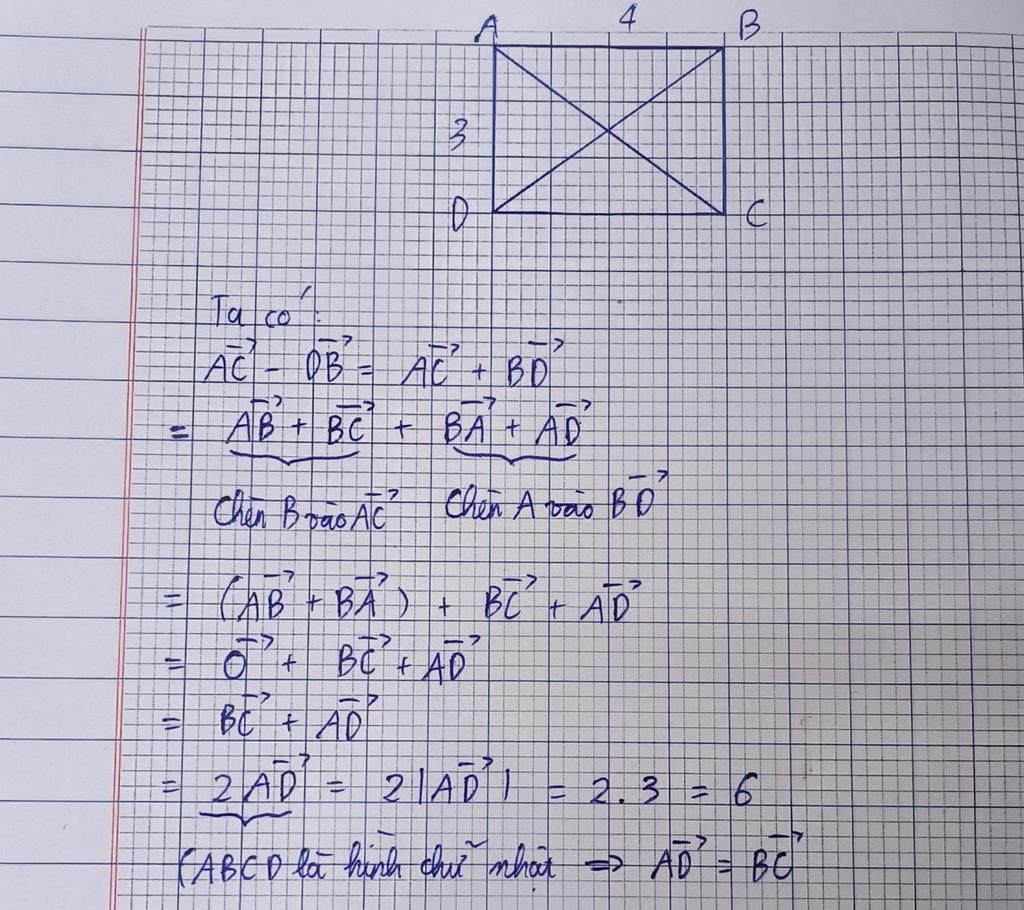 A 4 B
3
D C
Ta có:
AC⃗ - DB⃗ = AC⃗ + BD⃗
= AB⃗ + BC⃗ + BA⃗ + AD⃗
Chèn B vào AC⃗ Chèn A vào BD⃗
= (AB⃗ + BA⃗) + BC⃗ + AD⃗
= O⃗ + BC⃗ + AD⃗
= BC⃗ + AD⃗
= 2AD⃗ = 2|AD⃗| = 2.3 = 6
(ABCD là hình chữ nhật ⇒ AD⃗ = BC⃗